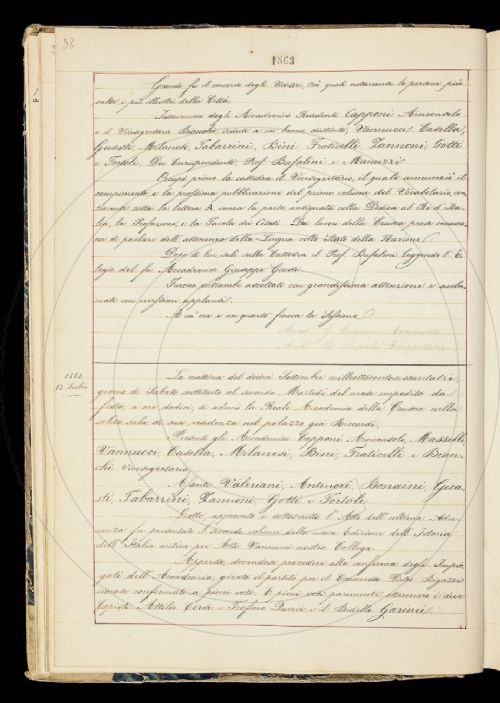 38
1863
Grande fu il concorso degli Uditori, tra i quali notavansi le persone più
culte e più illustri della Città.
Intervennero degli Accademici Residenti Capponi Arciconsolo
e il Vicesegretario Bianchi seduti a un banco distinto, Vannucci, Casella,
Guasti, Milanesi, Tabarrini, Bini, Fraticelli, Zannoni, Gotti
e Tortoli. Dei Corrispondenti Prof. Bufalini e Manuzzi.
Occupò primo la cattedra il Vicesegretario, il quale annunziò il
compimento e la prossima pubblicazione del primo volume del Vocabolario con
tutta la lettera A senza la parte antiquata colla Dedica al Re d'Ita-
lia, la Prefazione, e la Tavola dei Citati. Dai lavori della Crusca prese occasio-
ne di parlare dell'attenenza della Lingua collo Stato della Nazione.
Dopo di lui salì sulla Cattedra il Prof. Bufalini leggendo l'E-
logio del fu Accademico Giuseppe Giusti.
Furono entrambi ascoltati con grandissima attenzione e accla-
mati con vivissimi applausi.
A un'ora e un quarto finiva la Sessione.
1863
12 Settbre
La mattina del dodici Settembre milleottocentosessantatrè
giorno di Sabato sostituito al secondo Martedì del mese impedito da
festa, a ore dodici, si adunò la Reale Accademia della Crusca nella
solita sala di sua residenza nel palazzo già Riccardi.
Presenti gli Accademici Capponi Arciconsolo, Masselli,
Vannucci, Casella, Milanesi, Bini, Fraticelli e Bian-
chi Vicesegretario.
Assenti Valeriani, Antinori, Bonaini, Gua-
sti, Tabarrini, Zannoni, Gotti e Tortoli.
Letto, approvato e sottoscritto l'Atto dell'ultima Adu-
nanza fu presentato il secondo volume della nuova Edizione dell'Istoria
dell'Italia antica per Atto Vannucci nostro Collega.
Appresso dovendosi procedere alla conferma degli Impie-
gati dell'Accademia, girato il partito per il Commesso Bigazzi
rimase confermato a pieni voti. E pieni voti parimente ottennero i due
Copisti Attilio Cerdi e Trofimo Pucci e il Bidello Garinei.